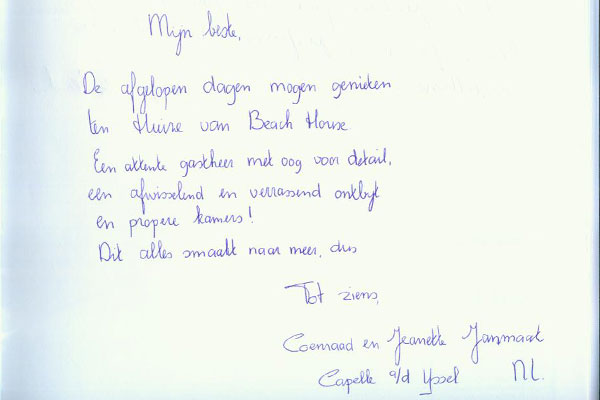 Mijn beste,
De afgelopen dagen mogen genieten
ten Huize van Beach House
Een attente gastheer met oog voor detail,
een afwisselend en verrassend ontbijt
en propere kamers!
Dit alles smaakt naar meer, dus
Tot ziens,
Coenraad en Jeanette Janmaat
Capelle a/d Yssel NL.